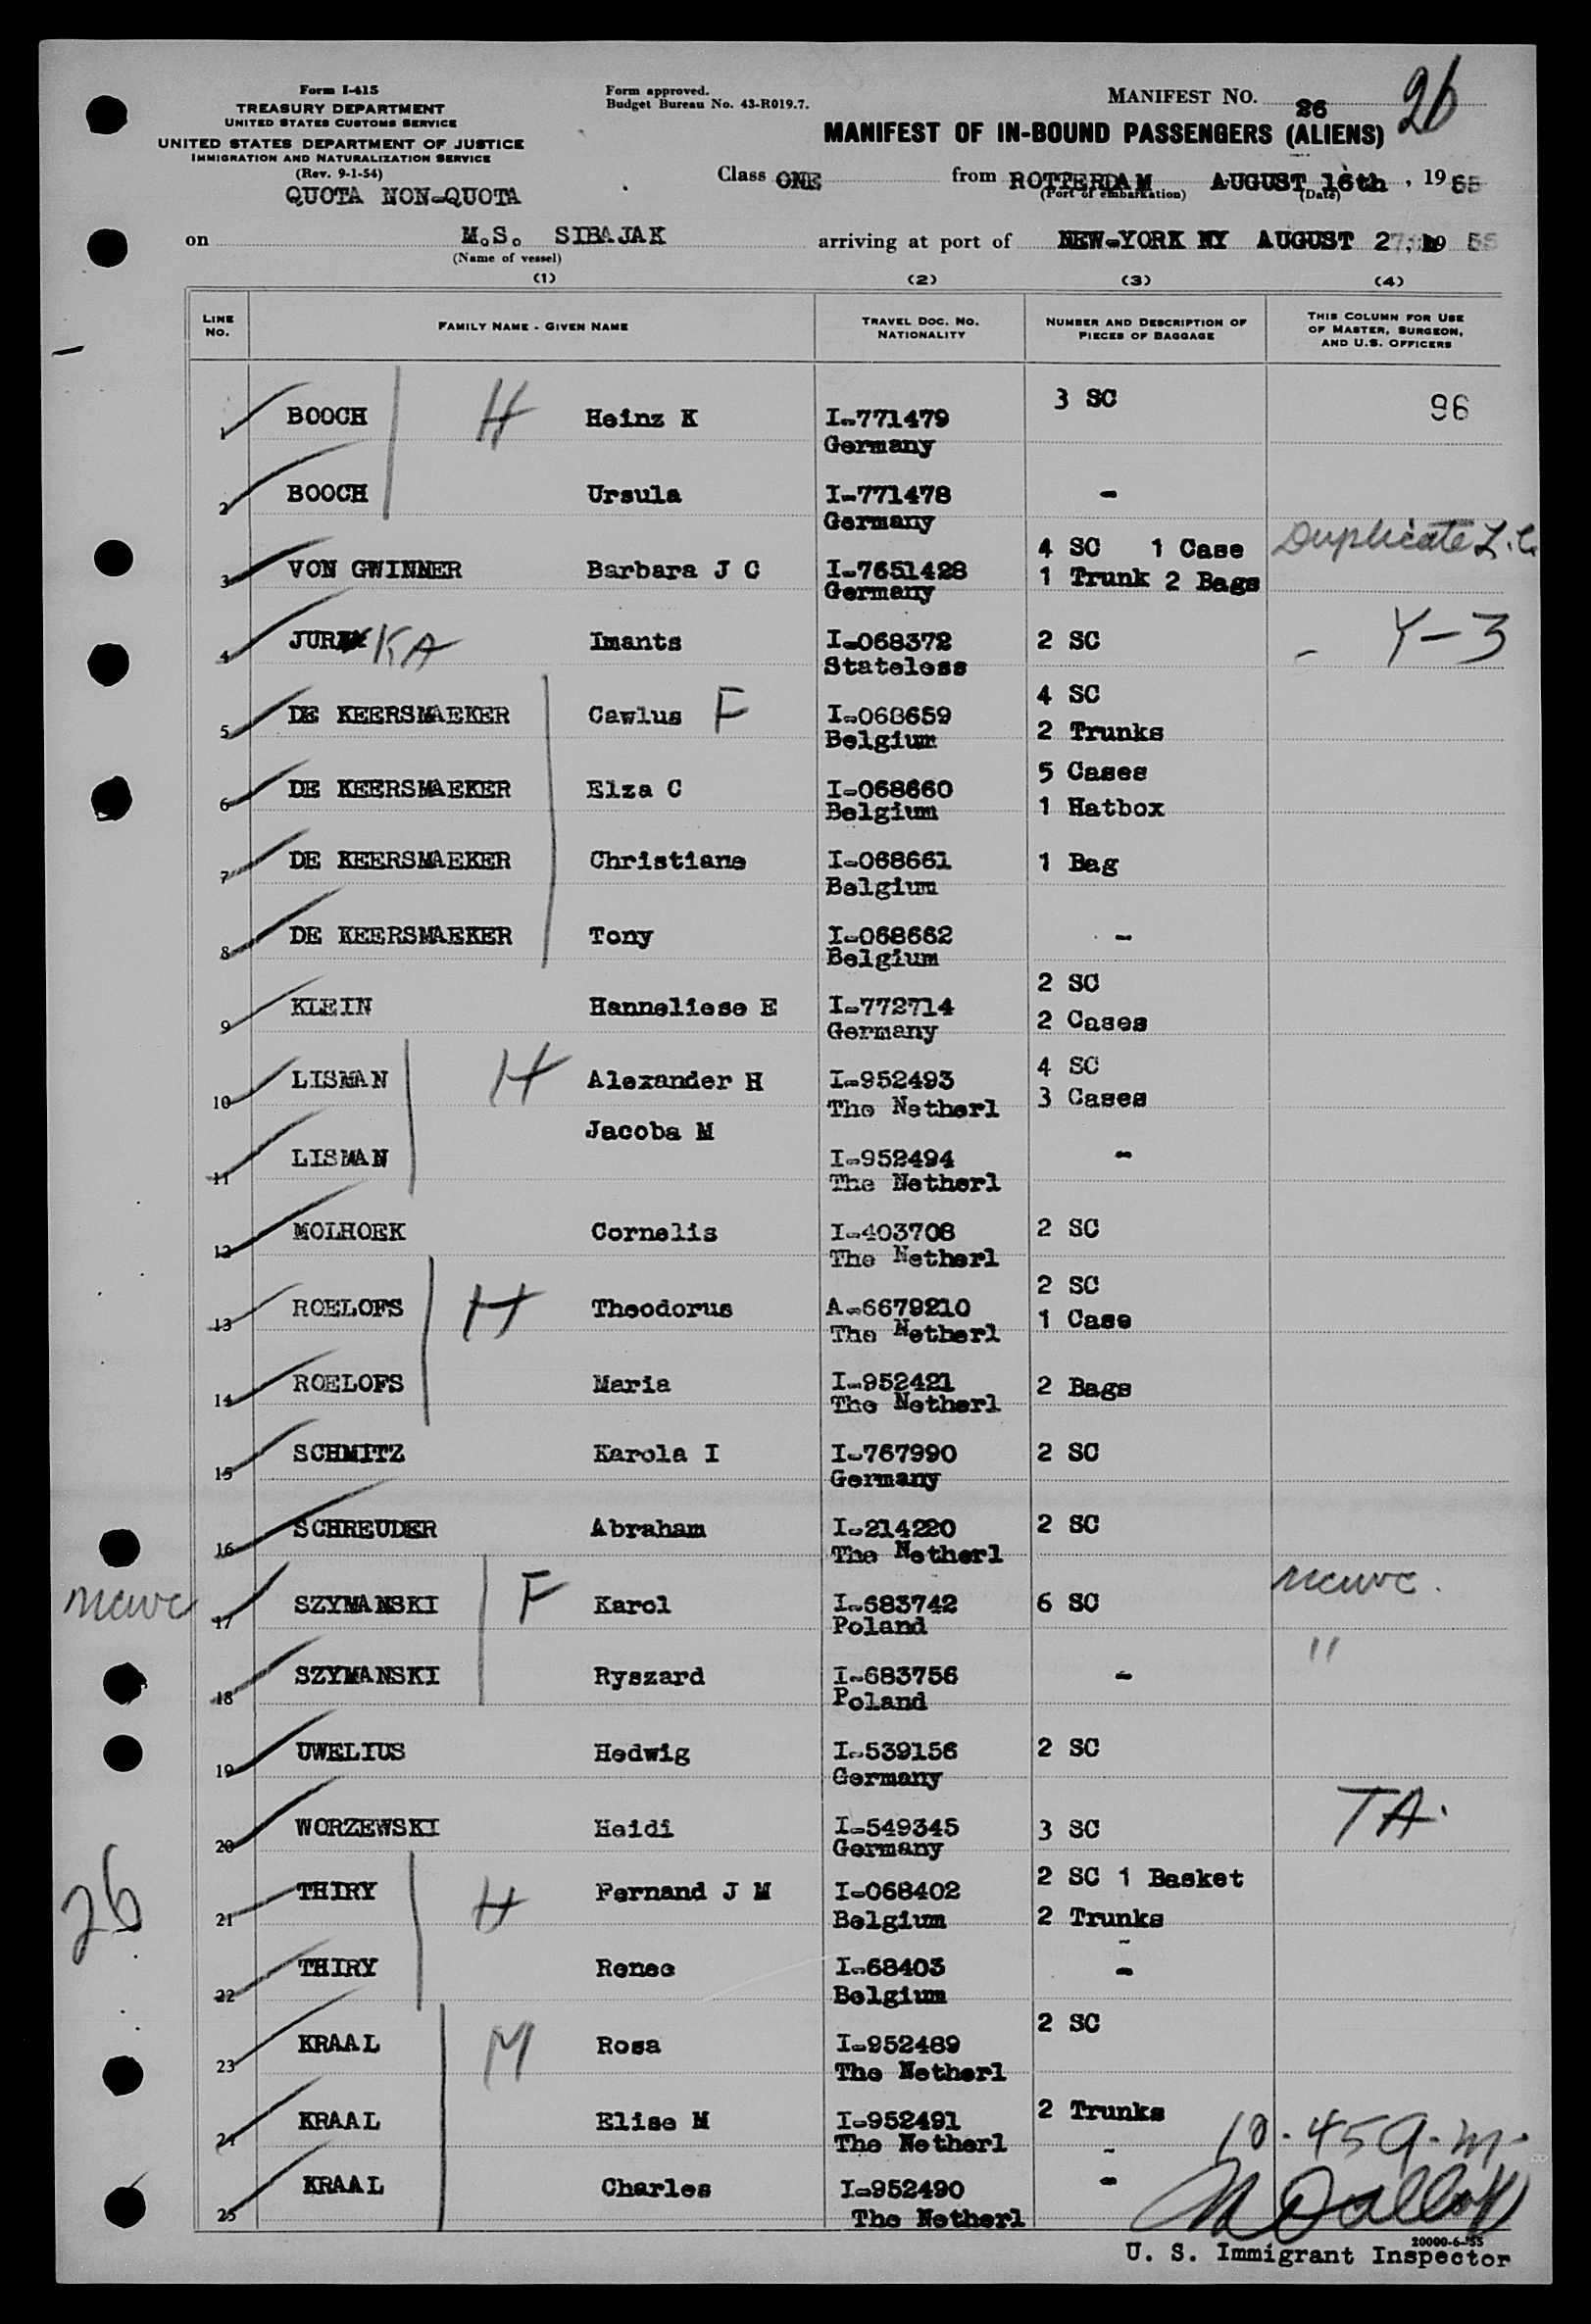 Form I-415
TREASURY DEPARTMENT
UNITED STATES CUSTOMS SERVICE
UNITED STATES DEPARTMENT OF JUSTICE
IMMIGRATION AND NATURALIZATION SERVICE
(Rev. 9-1-54)
QUOTA NON-QUOTA
Form approved.
Budget Bureau No. 43-R019.7.
MANIFEST NO. 26 26
MANIFEST OF IN-BOUND PASSENGERS (ALIENS)
Class ONE from ROTTERDAM AUGUST 16th, 1955
(Port of embarkation) (Date)
on M.S. SIBAJAK arriving at port of NEW-YORK NY AUGUST 27, 19 55
(Name of vessel)
(1) (2) (3) (4)
LINE NO. FAMILY NAME - GIVEN NAME TRAVEL DOC. NO. NATIONALITY NUMBER AND DESCRIPTION OF PIECES OF BAGGAGE THIS COLUMN FOR USE OF MASTER, SURGEON, AND U.S. OFFICERS
1 BOOCH H Heinz K I-771479 3 SC 96
Germany
2 BOOCH Ursula I-771478 -
Germany
3 VON GWINNER Barbara J C I-7651428 4 SC 1 Case Duplicate L.C.
Germany 1 Trunk 2 Bags
4 JURKA Imants I-068372 2 SC - Y-3
Stateless
5 DE KEERSMAEKER Cawlus F I-068659 4 SC
Belgium 2 Trunks
6 DE KEERSMAEKER Elza C I-068660 5 Cases
Belgium 1 Hatbox
7 DE KEERSMAEKER Christiane I-068661 1 Bag
Belgium
8 DE KEERSMAEKER Tony I-068662 -
Belgium
9 KLEIN Hanneliese E I-772714 2 SC
Germany 2 Cases
10 LISMAN H Alexander H I-952493 4 SC
The Netherl 3 Cases
11 LISMAN Jacoba M I-952494 -
The Netherl
12 MOLHOEK Cornelis I-403708 2 SC
The Netherl
13 ROELOFS H Theodorus A-6679210 2 SC
The Netherl 1 Case
14 ROELOFS Maria I-952421 2 Bags
The Netherl
15 SCHMITZ Karola I I-767990 2 SC
Germany
16 SCHREUDER Abraham I-214220 2 SC
The Netherl
17 SZYMANSKI F Karol I-683742 6 SC
Poland
18 SZYMANSKI Ryszard I-683756 - "
Poland
19 UWELIUS Hedwig I-539156 2 SC
Germany
20 WORZEWSKI Heidi I-549345 3 SC TA.
Germany
26
21 THIRY H Fernand J M I-068402 2 SC 1 Basket
Belgium 2 Trunks
22 THIRY Renee I-68403 -
Belgium
23 KRAAL M Rosa I-952489 2 SC
The Netherl
24 KRAAL Elise M I-952491 2 Trunks
The Netherl - 10.45 a.m.
25 KRAAL Charles I-952490 -
The Netherl
20000-6-55
U. S. Immigrant Inspector